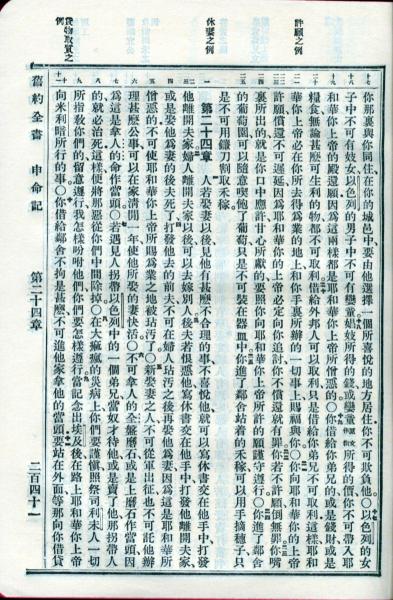 許願之例
休妻之例
貨物取質之例
你那裏與你同住在你的城邑中要由他選擇一個所喜悅的地方居住你不可欺負他〇以色列的女
子中不可有妓女以色列的男子中不可有孌童娼妓所得的錢或孌童所得的價你不可帶入耶
和華你上帝的殿還願因為這兩樣都是耶和華你上帝所憎惡的〇你借給你弟兄的或是錢財或是
糧食無論甚麼可生利的物都不可取利借給外邦人可以取利只是借給你弟兄不可取利這樣耶和
華你上帝必在你所去得為業的地上和你手裏所辦的一切事上賜福與你〇你向耶和華你的上帝
許願償還不可遲延因為耶和華你的上帝必定向你追討你不償還就有罪你若不許願倒無罪你嘴
裏所出的就是你口中應許甘心所獻的要照你向耶和華你上帝所許的願謹守遵行〇你進了鄰舍
的葡萄園可以隨意喫飽了葡萄只是不可裝在器皿中你進了鄰舍站着的禾稼可以用手摘穗子只
是不可用鐮刀割取禾稼
第二十四章 人若娶妻以後見他有甚麼不合理的事不喜悅他就可以寫休書交在他手中打發
他離開夫家婦人離開夫家以後可以去嫁別人後夫若恨惡他寫休書交在他手中打發他離開夫家
或是娶他為妻的後夫死了打發他去的前夫不可在婦人玷汚之後再娶他為妻因為這是耶和華所
憎惡的不可使耶和華你上帝所賜為業之地被玷汚了〇新娶妻之人不可從軍出征也不可託他辦
理甚麼公事可以在家清閒一年使他所娶的妻快活〇不可拿人的全盤磨石或是上磨石作當頭因
為這是拿人的命作當頭〇若遇見人拐帶以色列中的一個弟兄當奴才待他或是賣了他那拐帶人
的就必治死這樣便將那惡從你們中間除掉〇在大痲瘋的災病上你們要謹慎照祭司利未人一切
所指教你們的留意遵行我怎樣吩咐他們你們要怎樣遵行當記念出埃及後在路上耶和華你上帝
向米利暗所行的事〇你借給鄰舍不拘是甚麼不可進他家拿他的當頭要站在外面等那向你借貸
舊約全書 申命記 第二十四章 二百四十一